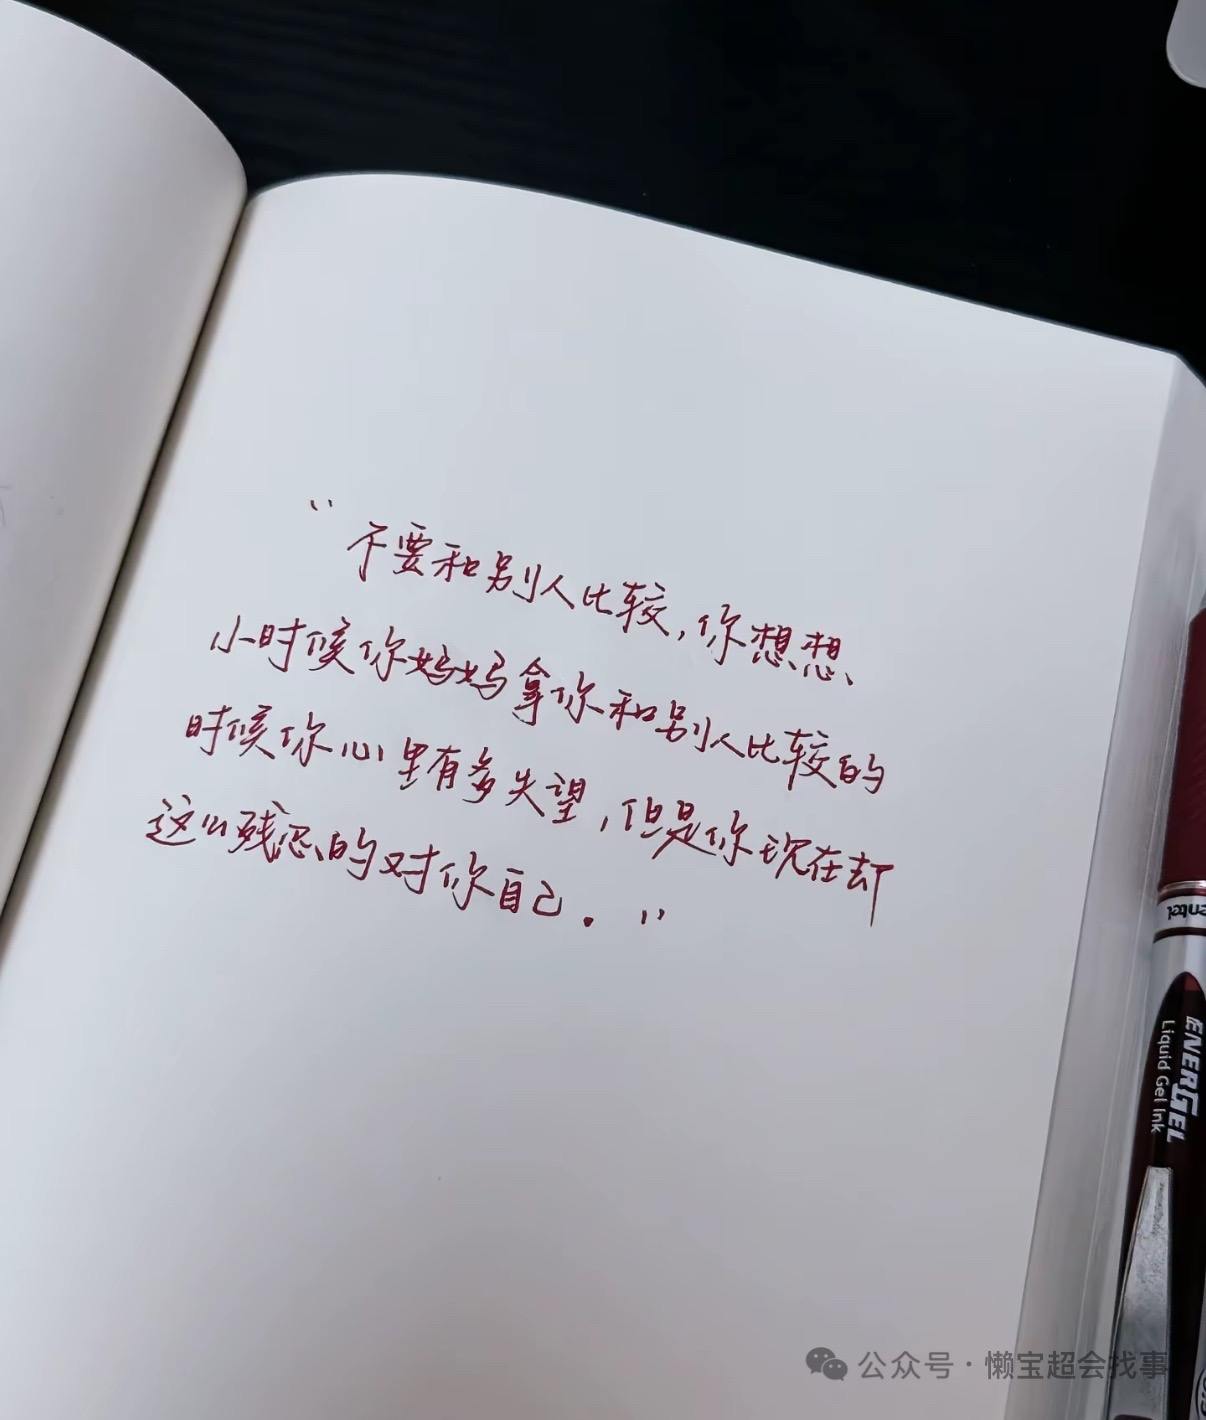 “不要和别人比较，你想想、
小时候你妈妈拿你和别人比较的
时候你心里有多失望，但是你现在却
这么残忍的对你自己．”
entel
ENERGEL
Liquid Gel Ink
公众号·懒宝超会找事